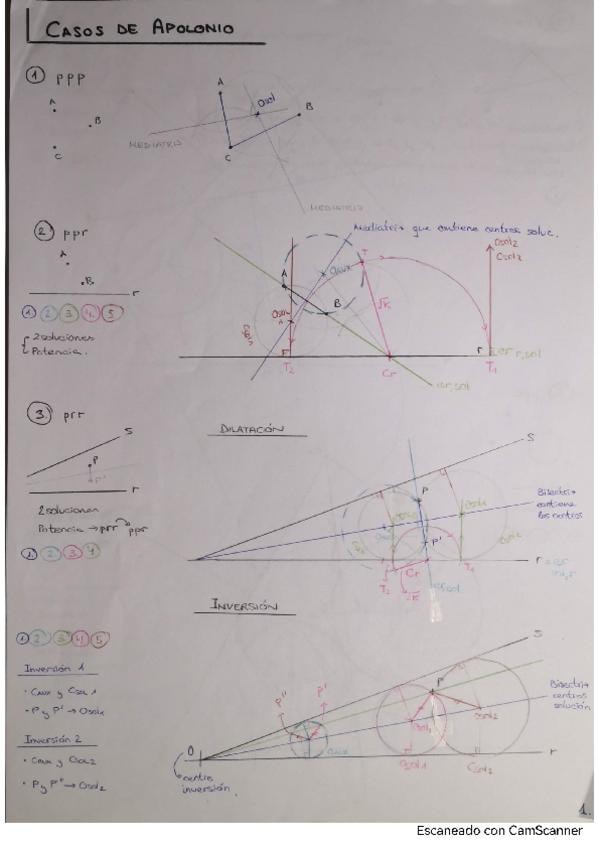 CASOS DE APOLONIO
1 PPP
A
B
C
A
Osol
B
C
MEDIATRIZ
MEDIATRIZ
2 ppr
A
B
r
1 2 3 4 5
2 soluciones
Potencia.
Mediatriz que contiene centros soluc.
A
B
Oaux
T
√K
Osol2
Csol2
r
T2
Cr
T1
er,sol
3 prr
S
P
P'
r
2 soluciones
Potencia → prr ppr
1 2 3 4
DILATACIÓN
S
P
P'
Bisectriz
contiene
los centros
r
T2
Cr
T1
√K
INVERSIÓN
1 2 3 4 5
Inversión 1
· Caux y Csol 1
· P y P' → Osol1
Inversión 2
· Caux y Osol2
· P y P'' → Osol2
S
P
P''
P'
Bisectriz
centros
solución
O
Oaux
Osol1
Osol2
r
Csol1
Csol2
centro
inversión.
1.
Escaneado con CamScanner